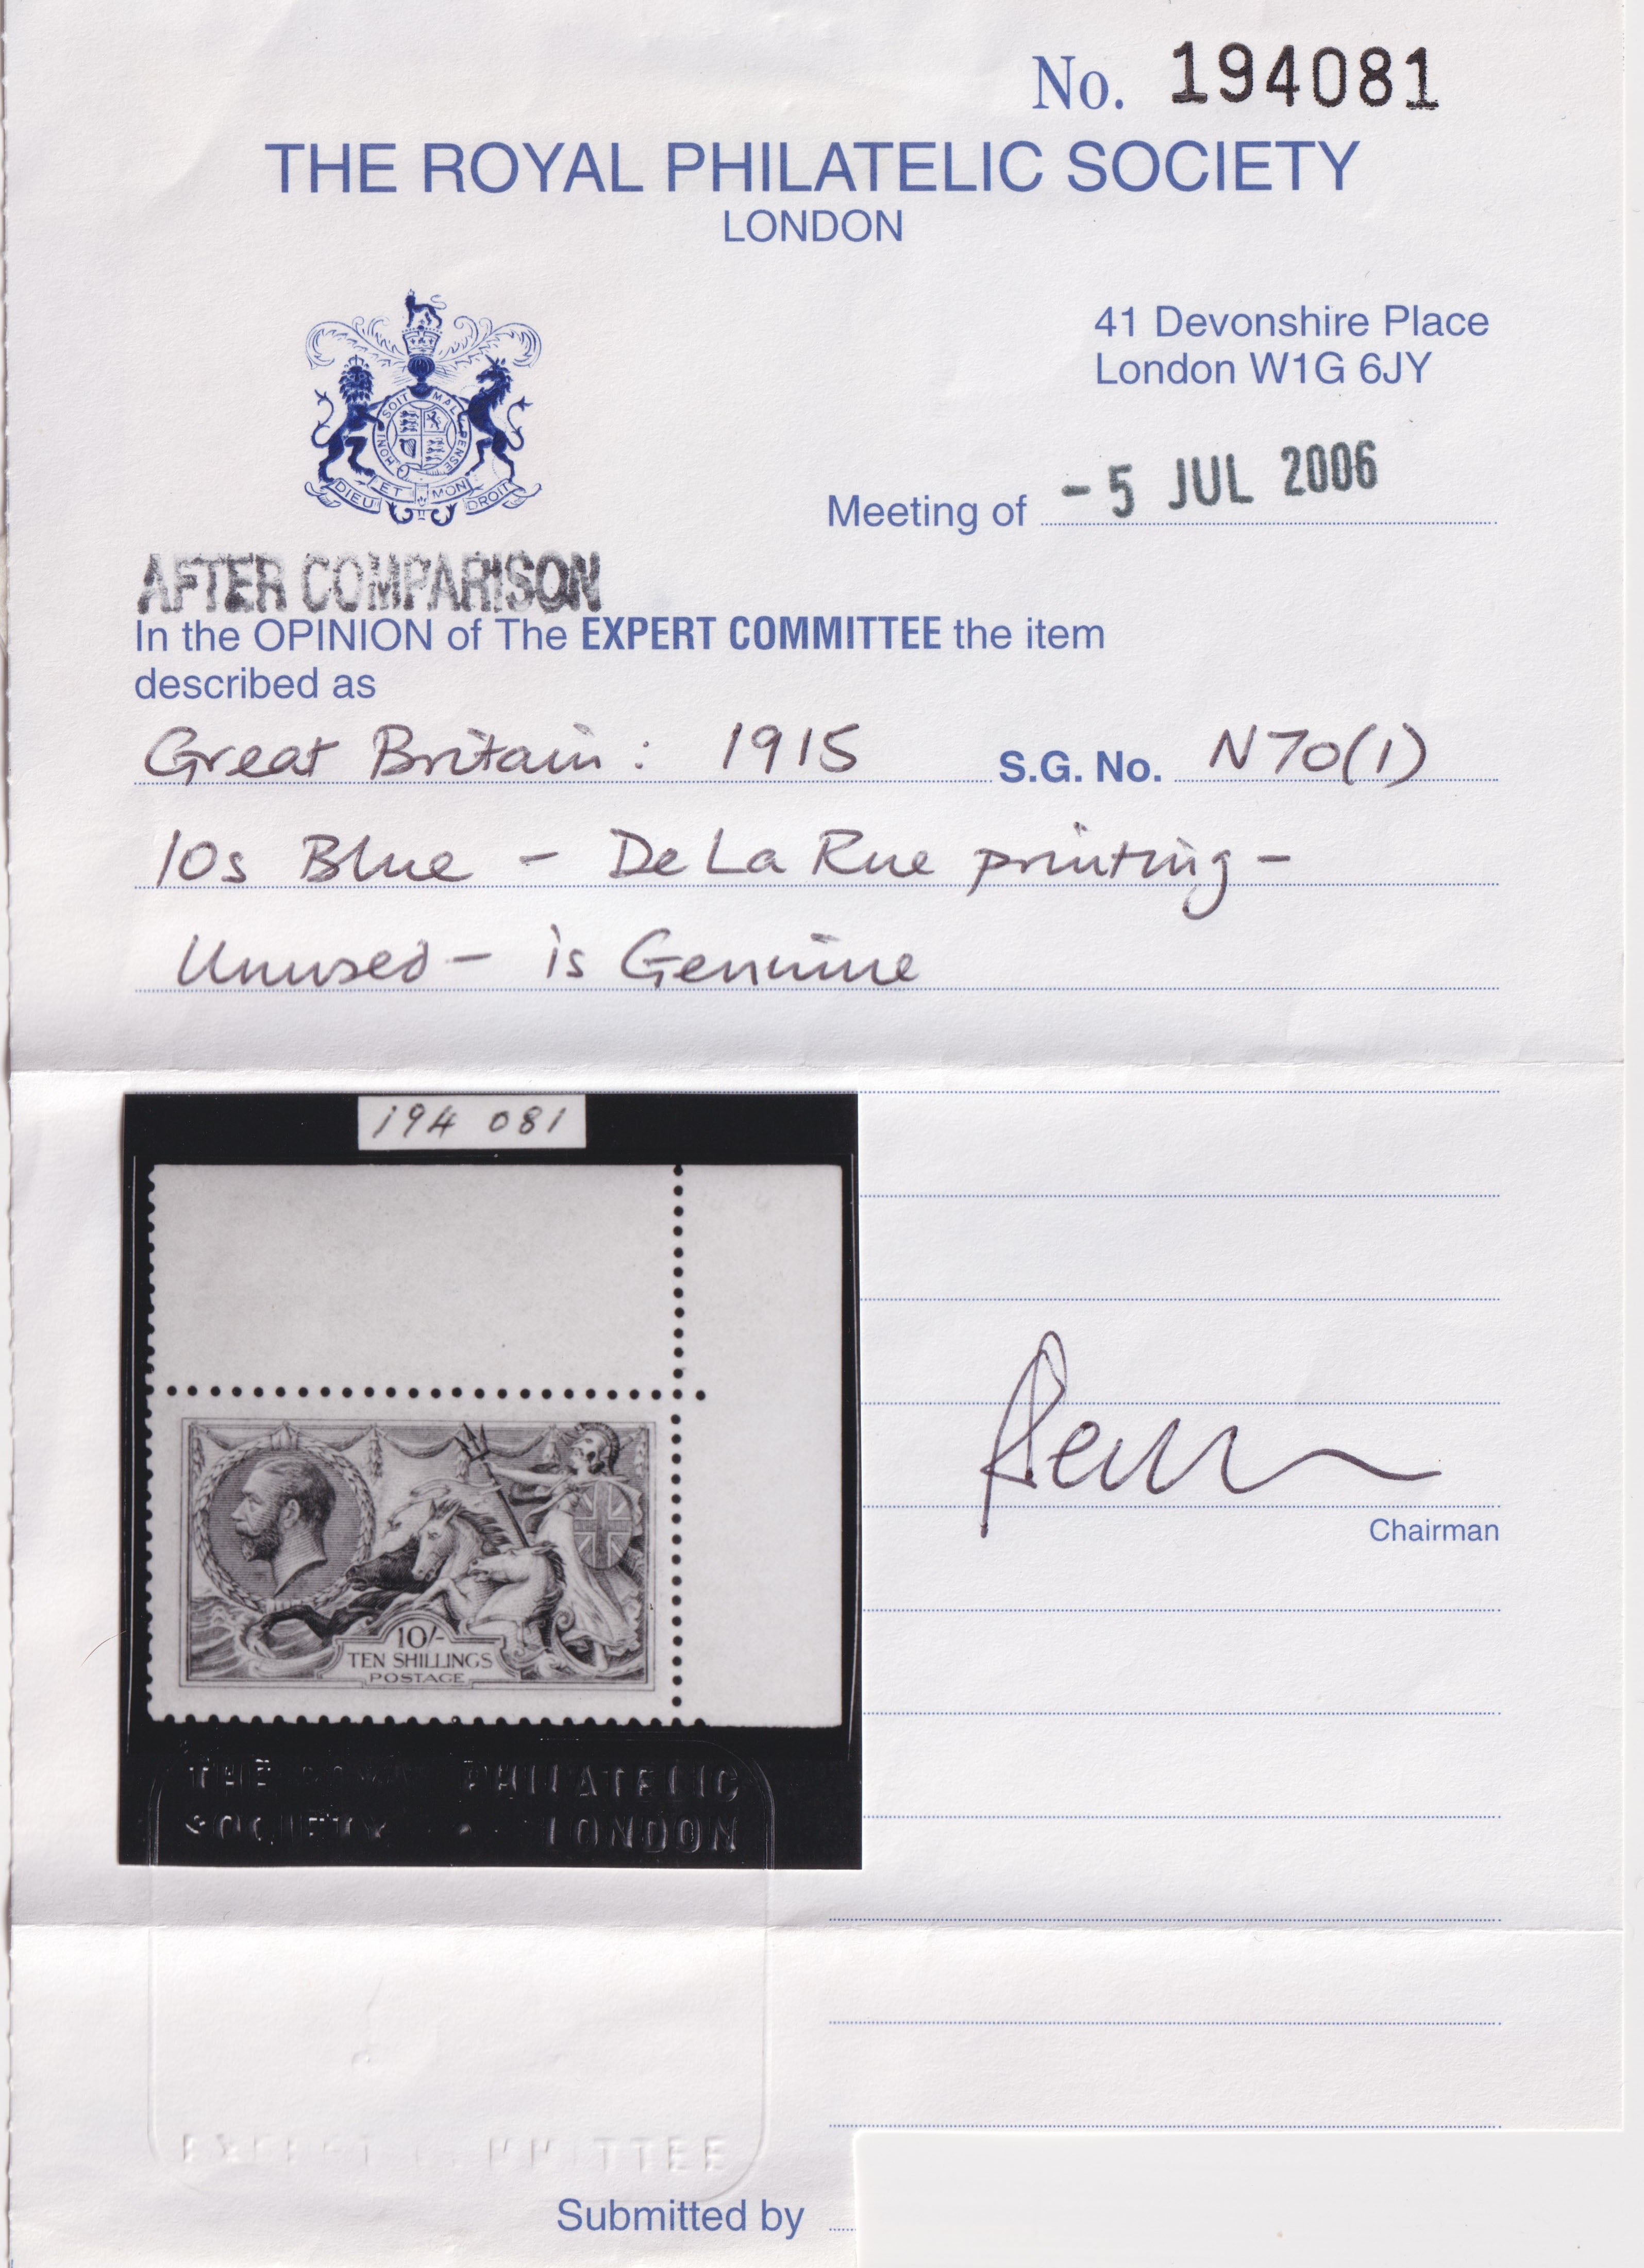 No. 194081
THE ROYAL PHILATELIC SOCIETY
LONDON
41 Devonshire Place
London W1G 6JY
HONI SOIT MAL PENSE
DIEU ET MON DROIT
Meeting of - 5 JUL 2006
AFTER COMPARISON
In the OPINION of The EXPERT COMMITTEE the item
described as
Great Britain: 1915 S.G. No. N70(1)
10s Blue – De La Rue printing –
Unused – is Genuine
194 081
10/-
TEN SHILLINGS
POSTAGE
Chairman
THE ROYAL PHILATELIC
SOCIETY LONDON
EXPERT COMMITTEE
Submitted by